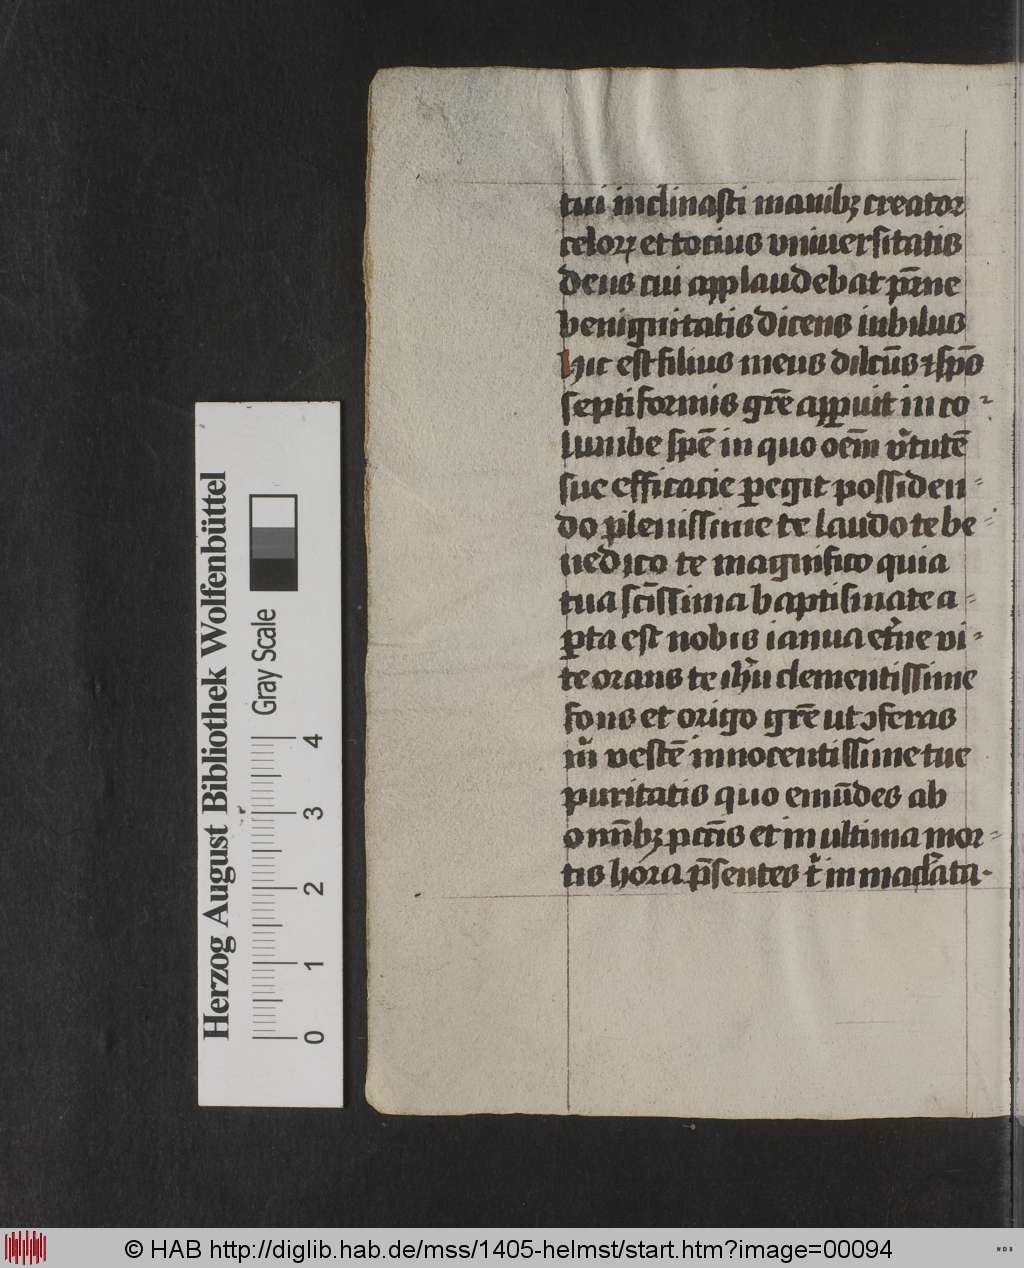 tui inclinasti manibꝫ creator
celoꝝ et tocius vniuersitatis
deus cui applaudebat pꝛ̄ne
benignitatis dicens iubilus
hic est filius meus dilcūs ⁊ sp̄s
septiformis gr̄e appuit in co⸗
lumbe spē in quo oēm v̓tutē
sue efficacie ꝑegit possiden⸗
do plenissime te laudo te be⸗
nedico te magnifico quia
tua sc̄issima baptismate a⸗
ꝑta est nobis ianua et̓ne vi⸗
te orans te ihū clementissime
fons et origo gr̄e ut ꝯferas
m̓ vestē innocentissime tue
puritatis quo emūdes ab
omībꝫ pctīs et in ultima mor⸗
tis hora p̄sentes t̓ immaclata⸗
Herzog August Bibliothek Wolfenbüttel
Gray Scale
0 1 2 3 4
© HAB http://diglib.hab.de/mss/1405-helmst/start.htm?image=00094